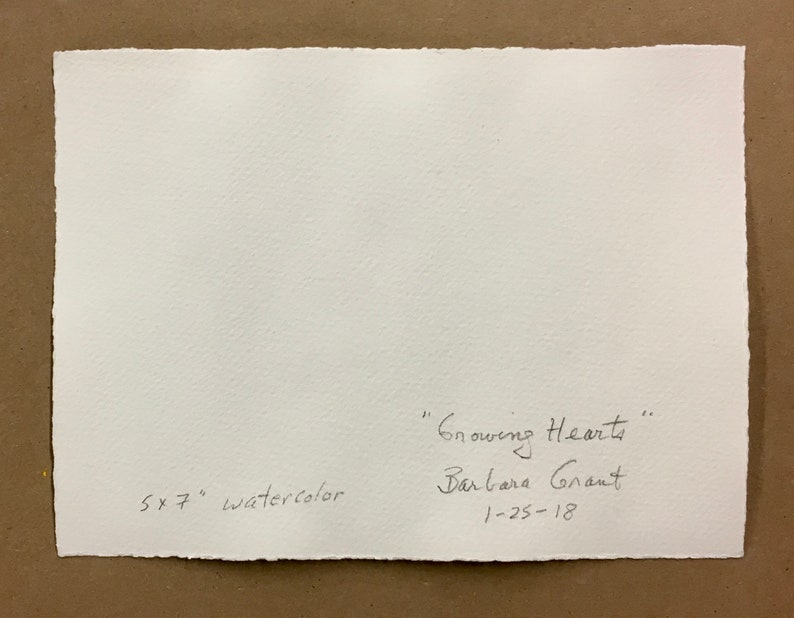 "Growing Hearts"
Barbara Grant
5x7" watercolor
1-25-18